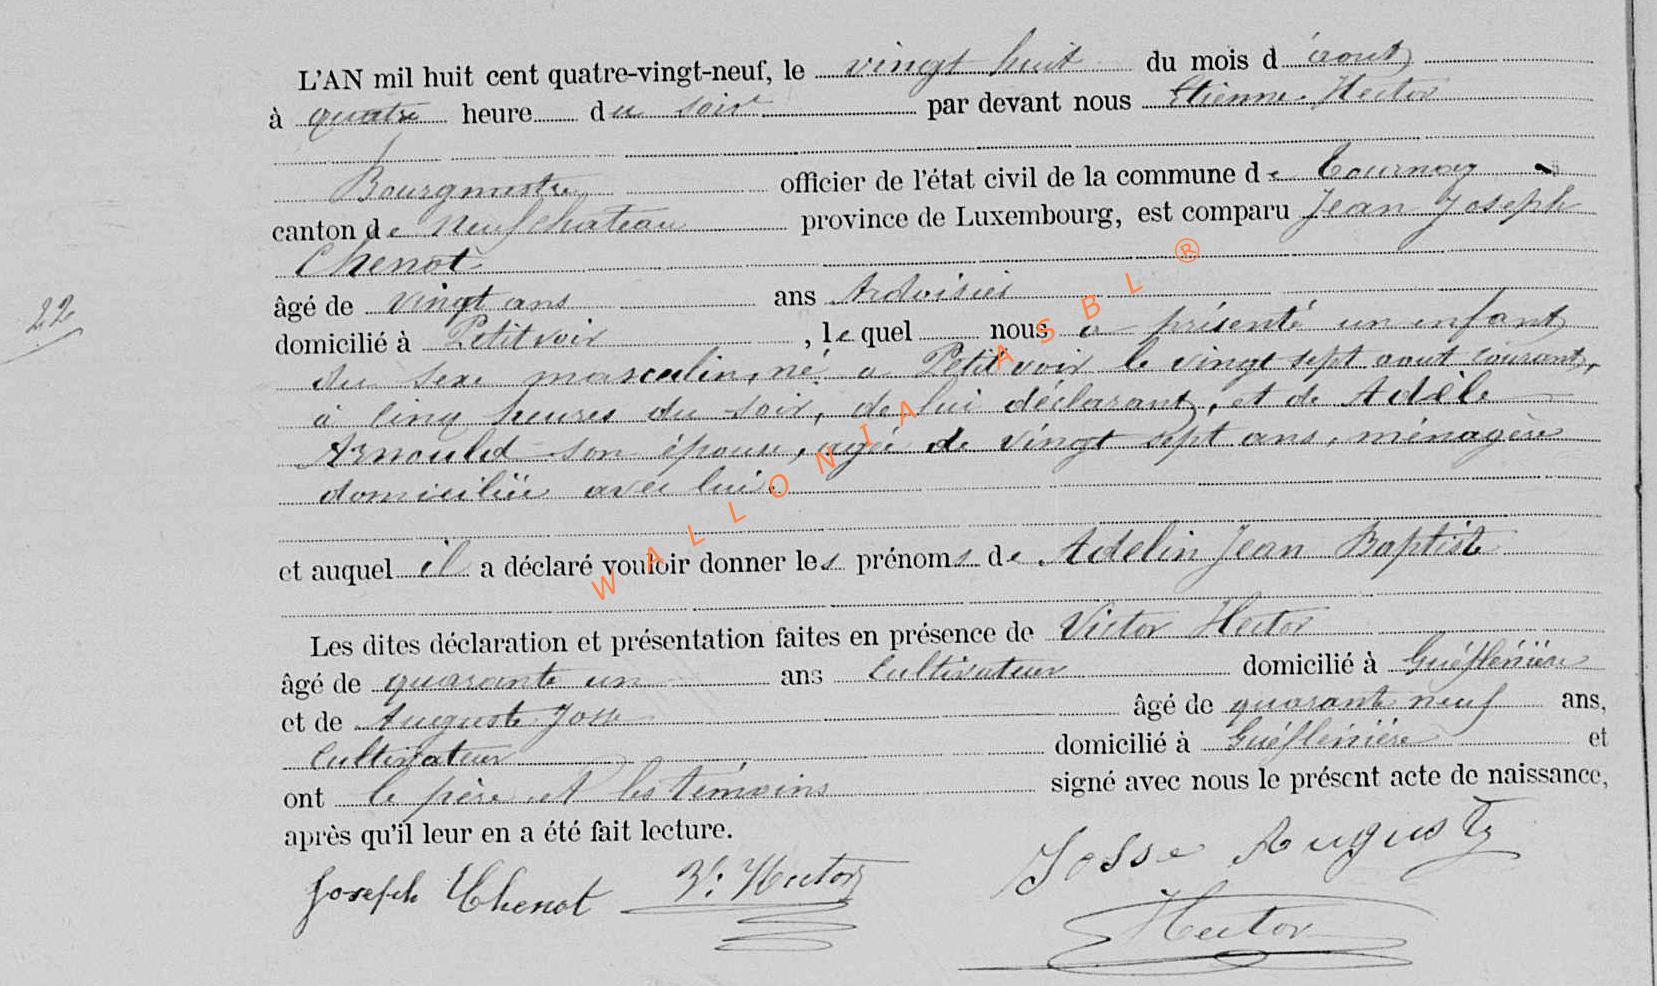 L'AN mil huit cent quatre-vingt-neuf, le vingt huit du mois d'aout
à quatre heure du soir par devant nous Etienne Hector
Bourgmestre officier de l'état civil de la commune de Tournay
canton de Neufchateau province de Luxembourg, est comparu Jean Joseph
Chenot
âgé de vingt ans ans Ardoisier
domicilié à Petitvoir, lequel nous a présenté un enfant
du sexe masculin, né a Petitvoir le vingt sept aout courant,
à cinq heures du soir, de lui déclarant, et de Adèle
Arnould son épouse, agée de vingt sept ans, ménagère
domiciliée avec lui.
et auquel il a déclaré vouloir donner les prénoms de Adelin Jean Baptiste
Les dites déclaration et présentation faites en présence de Victor Hector
âgé de quarante un ans Cultivateur domicilié à
et de Auguste Josse âgé de quarante neuf ans,
Cultivateur domicilié à et
ont le père et les témoins signé avec nous le présent acte de naissance,
après qu'il leur en a été fait lecture.
Josse Auguste
Joseph Chenot V. Hector
Hector
22
WALLONIA ASBL ®